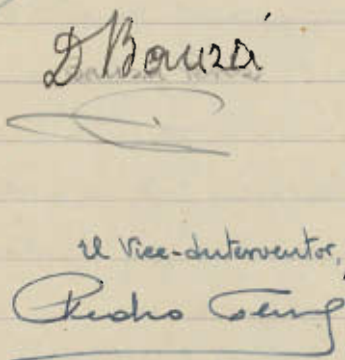 D Bauzá
El Vice-Interventor,
Pedro